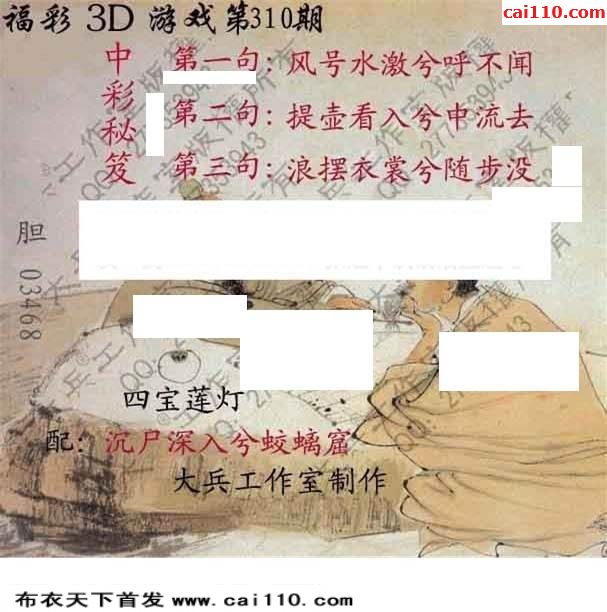 福彩 3D 游戏第310期
cai110.com
中彩秘笈
第一句：风号水激兮呼不闻
第二句：提壶看入兮中流去
第三句：浪摆衣裳兮随步没
胆 03468
四宝莲灯
配：沉尸深入兮蛟螭窟
大兵工作室制作
布衣天下首发 www.cai110.com